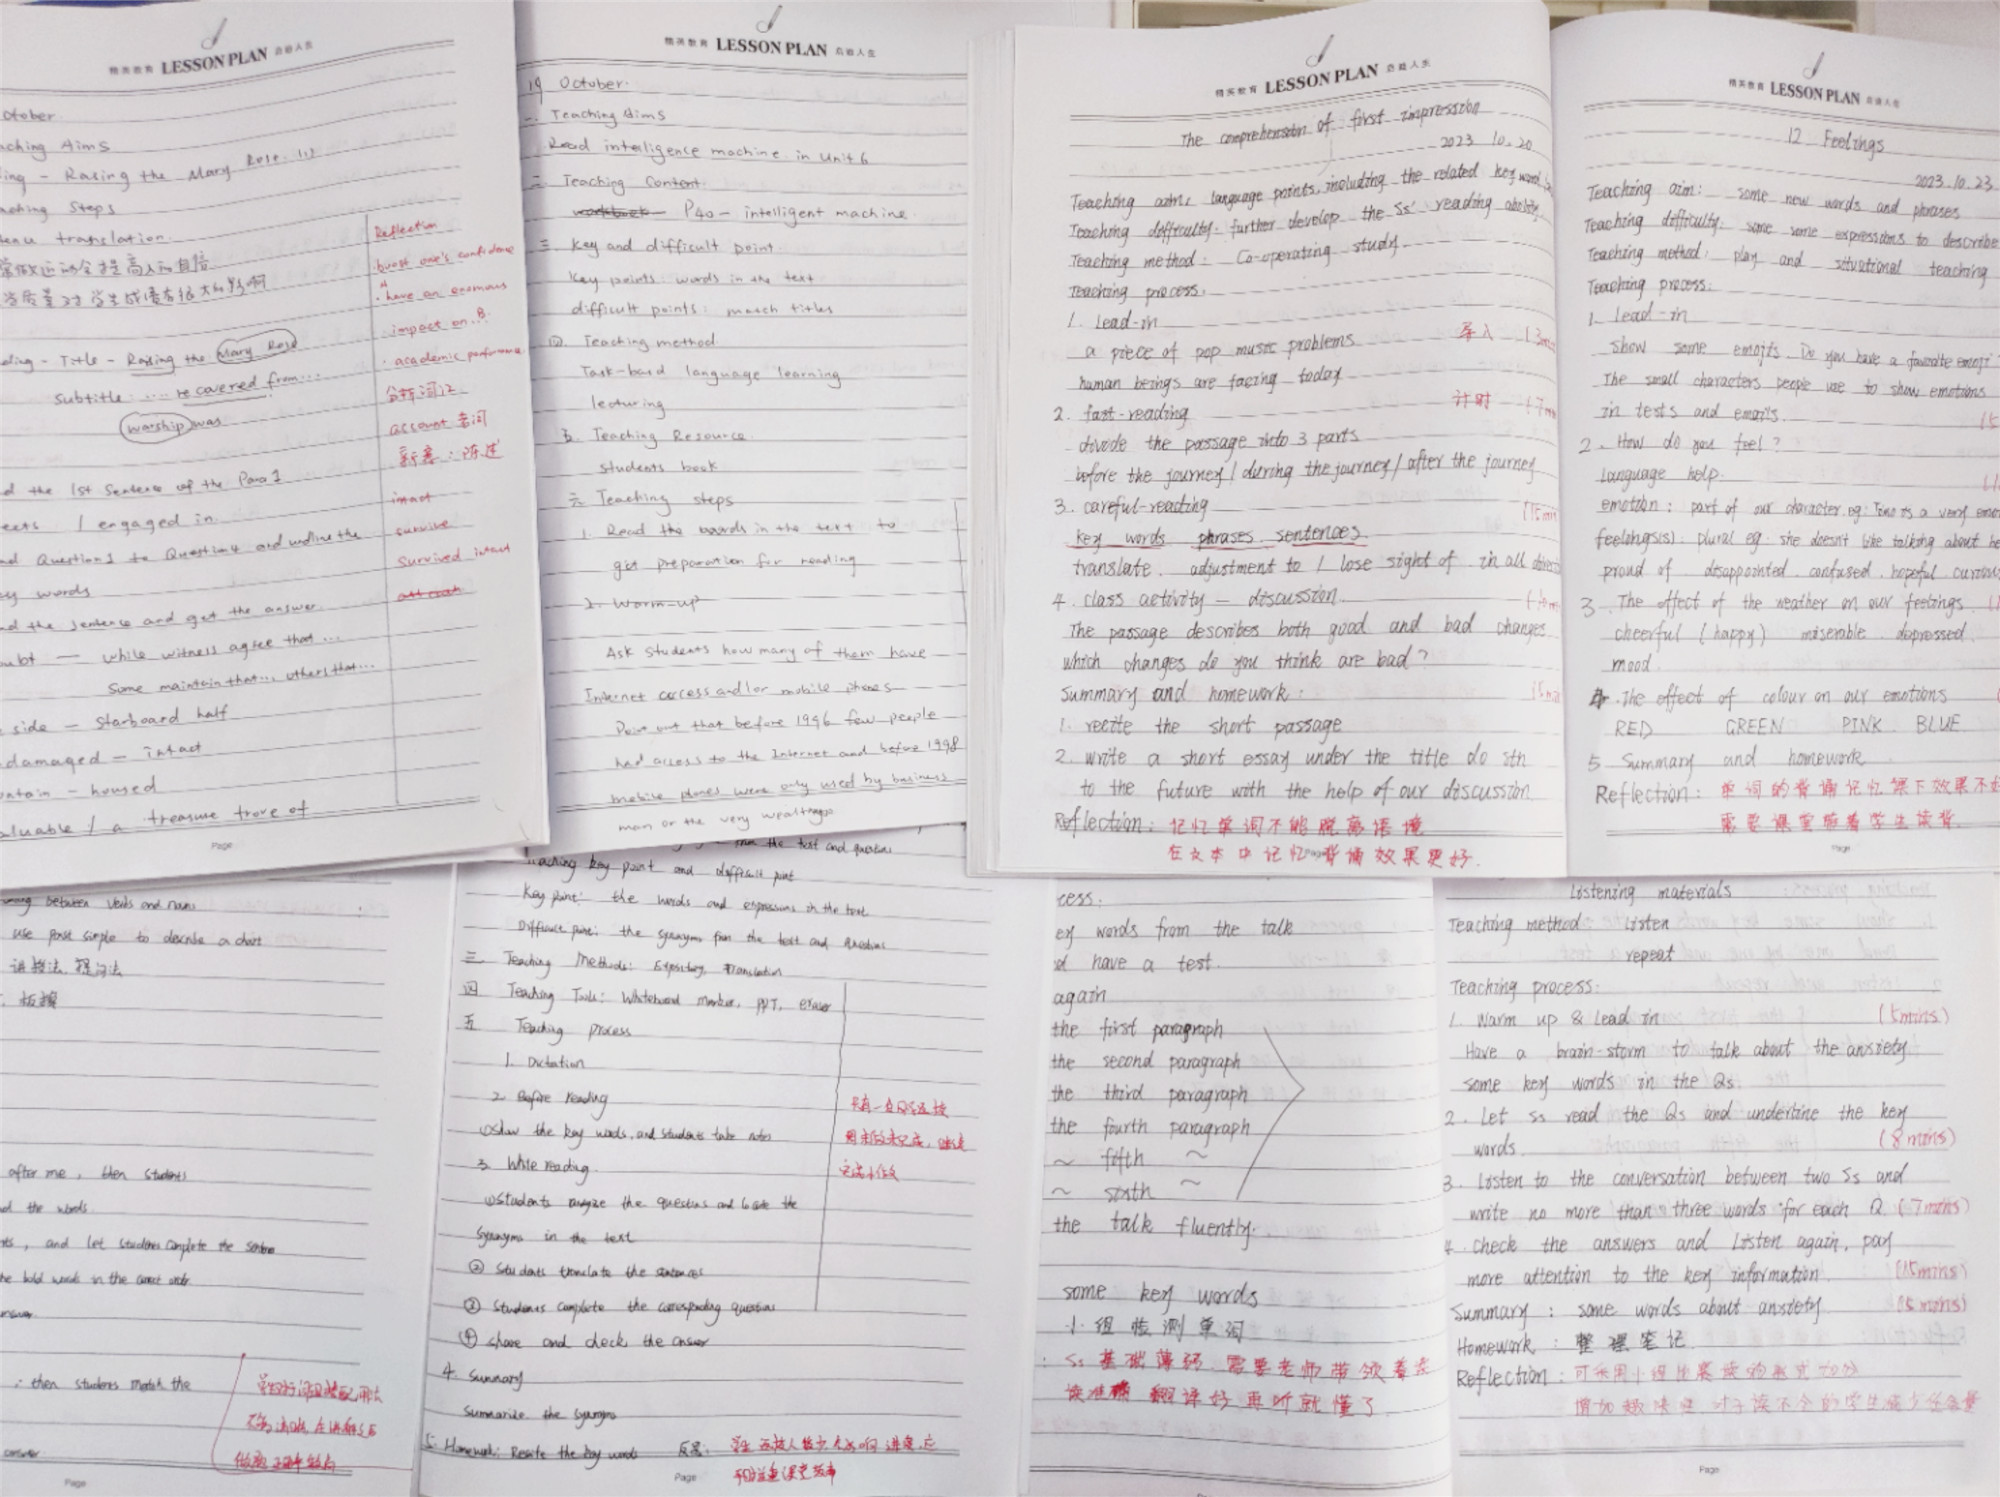 精英教育 LESSON PLAN 启迪人生
ctober
ching Aims
ing - Rasing the Mary Rose. (1)
ching Steps
tenu translation.
常做运动会提高人的自信
质量对学生成绩有很大的影响
ding - Title - Rasing the Mary Rose
Subtitle: .... recovered from...
warship was
d the 1st Sentence of the Para 1
eets / engaged in
nd Question 1 to Question 4 and underline the
y words
nd the sentence and get the answer.
oubt — while witness agree that ...
Some maintain that..., others that...
side — Starboard half
damaged — intact
ontain - housed
aluable / a treasure trove of
Reflection
boost one's confidence
· have an enormous
impact on B.
· academic performance
account 套词
新意: 陈述
intact
survive
Survived intact
Page
精英教育 LESSON PLAN 启迪人生
19 October.
一. Teaching Aims
Read intelligence machine in Unit 6
二 Teaching Content.
workbook P40 - intelligent machine.
三 Key and difficult point.
Key points: words in the text
difficult points: match titles
四. Teaching method
Task-based language learning
lecturing
五. Teaching Resource.
students book
六 Teaching steps
1. Read the words in the text to
get preparation for reading
2. Warm-up
Ask students how many of them have
Internet access and/or mobile phones
Point out that before 1996 few people
had access to the Internet and before 1998
mobile phones were only used by business
man or the very wealthy
精英教育 LESSON PLAN 启迪人生
The comprehension of first impression
2023 10.20
Teaching aim: language points, including the related key word,
Teaching difficulty: further develop the Ss' reading ability
Teaching method: Co-operating study
Teaching process:
1. Lead-in 导入
a piece of pop music problems
human beings are facing today
2. fast-reading 计时
divide the passage into 3 parts
before the journey / during the journey / after the journey
3. careful-reading
key words phrases sentences
translate. adjustment to / lose sight of in all
4. class activity — discussion.
The passage describes both good and bad changes
which changes do you think are bad?
summary and homework:
1. recite the short passage
2. write a short essay under the title do sth
to the future with the help of our discussion
Reflection: 记忆单词不能脱离语境
在文本中记忆背诵效果更好.
精英教育 LESSON PLAN 启迪人生
12 Feelings
2023.10.23.
Teaching aim: some new words and phrases
Teaching difficulty: some some expressions to describe
Teaching method: play and situational teaching
Teaching process:
1. Lead-in
show some emojis. Do you have a favorite emoji?
The small characters people use to show emotions
in texts and emails.
2. How do you feel?
Language help.
emotion: part of our character. eg: Tono is a very emo
feeling(s): plural eg. she doesn't like talking about he
proud of disappointed. confused. hopeful. curious
3. The effect of the weather on our feelings.
cheerful (happy) miserable. depressed.
mood.
4. The effect of colour on our emotions
RED GREEN PINK BLUE
5 Summary and homework
Reflection: 单词的背诵记忆课下效果不好
需要课堂带着学生读背.
Page
between Verbs and Nouns
use past simple to describe a chart
讲授法 提问法
板擦
after me, then students
d the words.
ts, and let students complete the sentence
he bold words in the correct order.
answer
: then students match the
answer
Page
from the text and question
Teaching key point and difficult point
Key point: the words and expressions in the text
Difficult point: the synonyms from the text and questions
三. Teaching Methods: Expository, Translation
四 Teaching Tools: Whiteboard marker, PPT, eraser
五 Teaching process
1. Dictation
2. Before reading
①Show the key words, and students take notes
3. While reading.
①Students analyze the questions and locate the
synonyms in the text
② Students translate the sentences
③ Students complete the corresponding question
④ share and check the answer
4. Summary
Summarize the synonyms
5. Homework: Recite the key words 反思:
Page
cess:
ey words from the talk
d have a test.
again
the first paragraph
the second paragraph
the third paragraph
the fourth paragraph
~ fifth ~
~ sixth ~
the talk fluently.
some key words
小组检测单词
: Ss 基础薄弱. 需要老师带领着读
读准确 翻译好 再听就懂了.
Listening materials
Teaching method: Listen
repeat
Teaching process:
1. Warm up & Lead in (5mins)
Have a brain-storm to talk about the anxiety
some key words in the Qs.
2. Let Ss read the Qs and underline the key
words. (8 mins)
3. Listen to the conversation between two Ss and
write no more than three words for each Q. (7mins)
4. Check the answers and listen again, pay
more attention to the key information. (15mins)
Summary: some words about anxiety. (5 mins)
Homework: 整理笔记.
Reflection: 可采用小组比赛读的形式加分
增加趣味性 对于读不会的学生减少任务量
Page